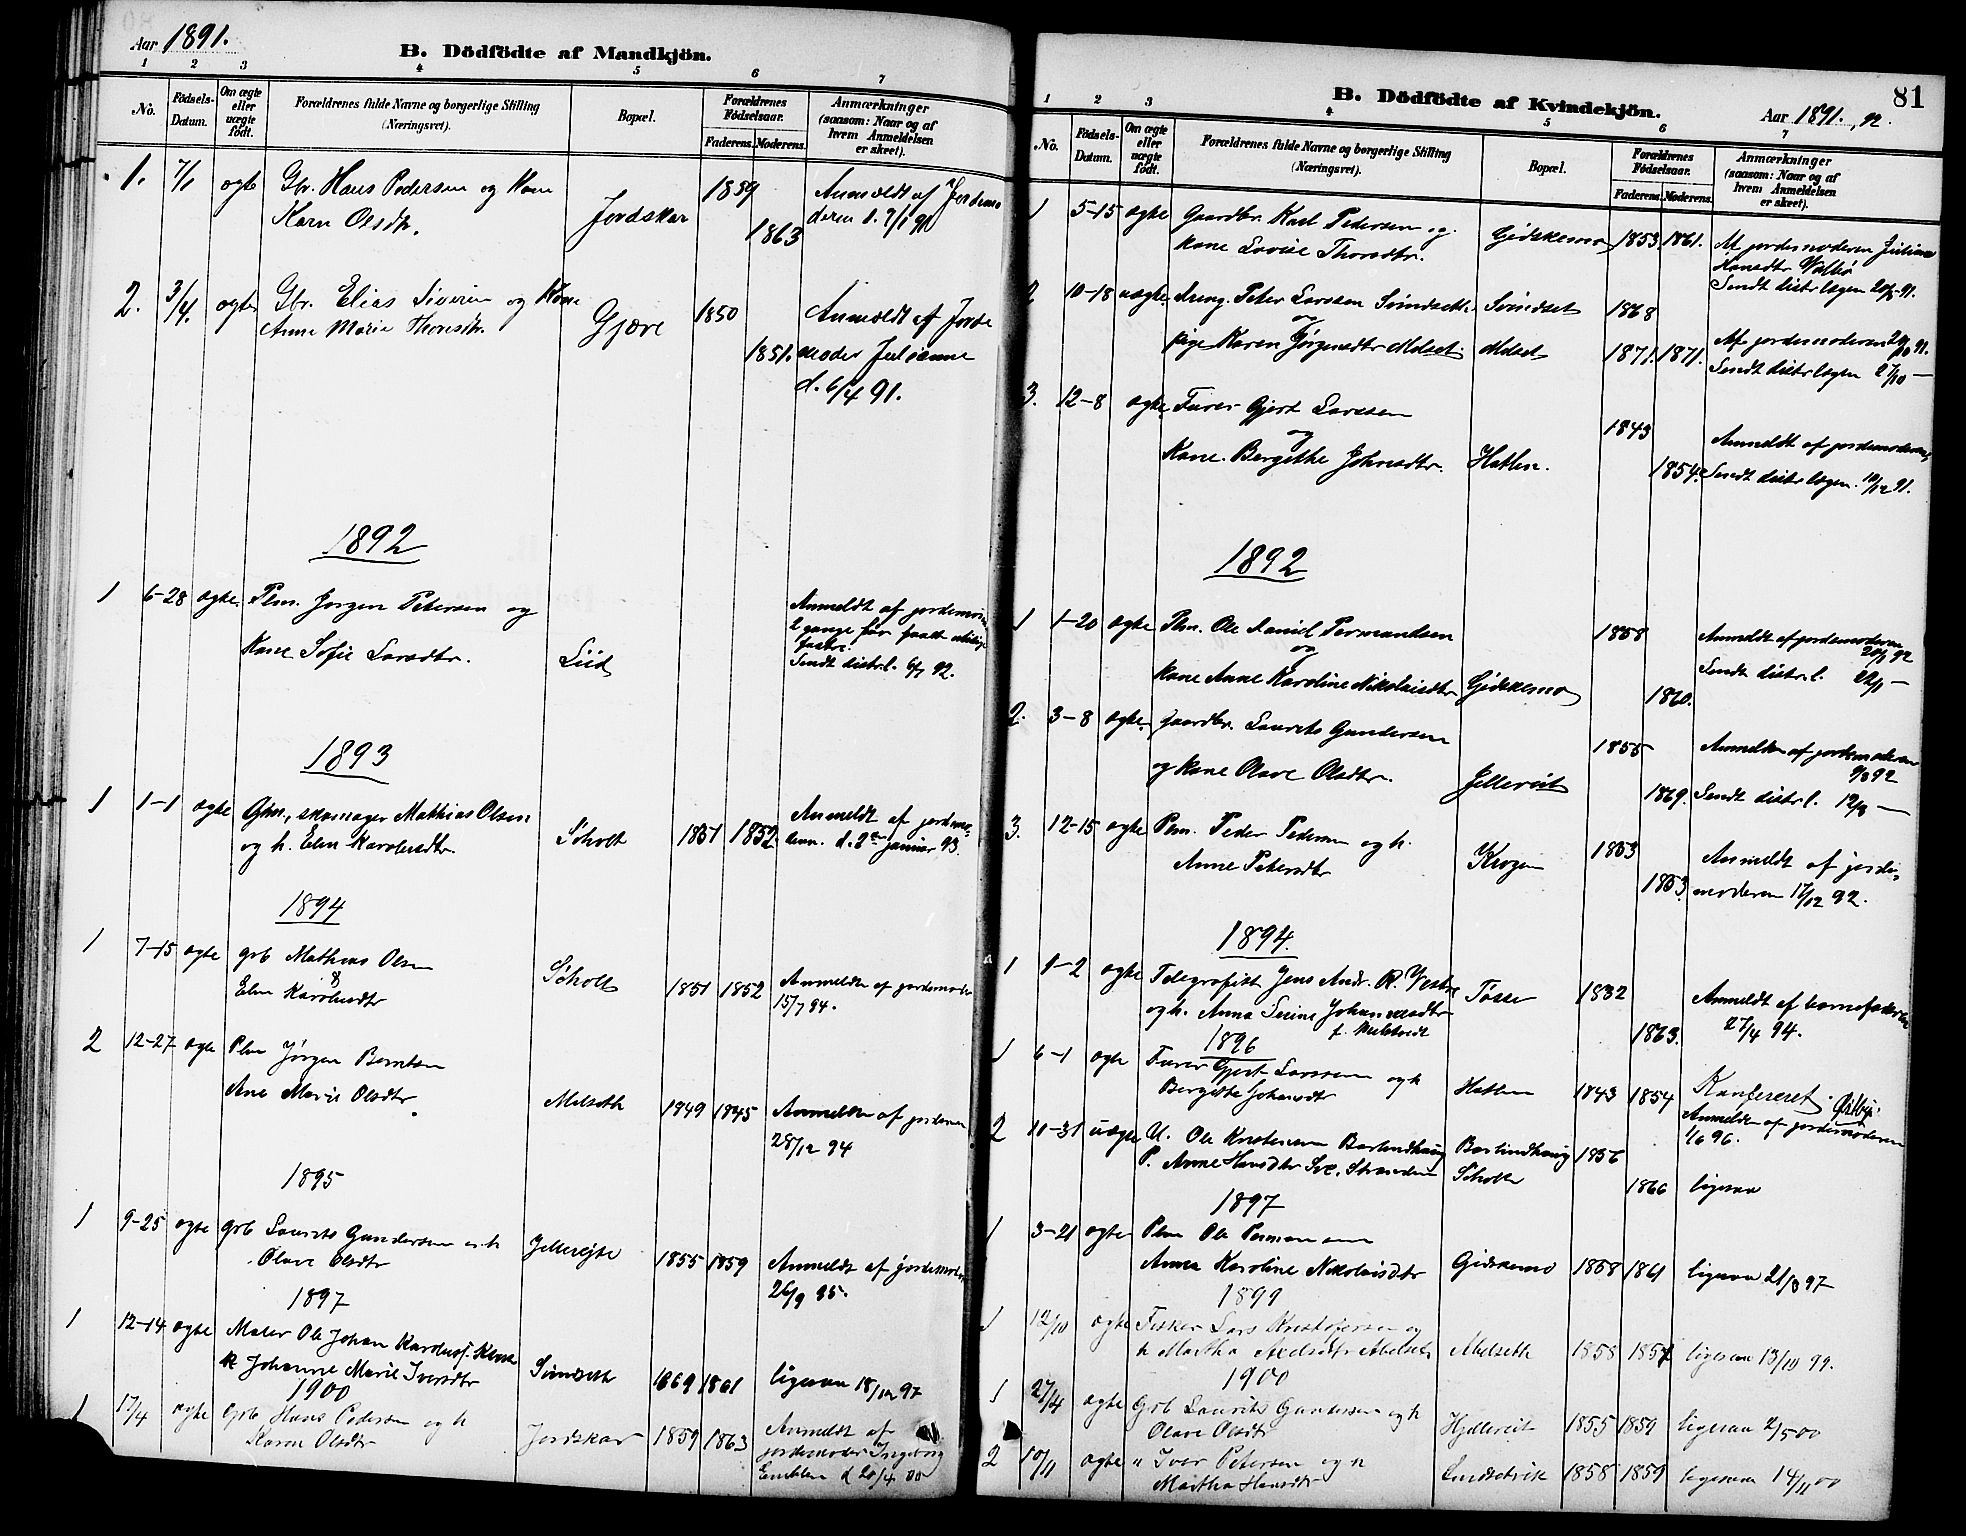 Aar 1891.
B. Dödfödte af Mandkjön.
1 2 3 4 5 6 7
No.
Födsels-Datum.
Om ægte eller uægte födt.
Forældrenes fulde Navne og borgerlige Stilling (Næringsvei).
Bopæl.
Forældrenes Födselsaar.
Faderens. Moderens.
Anmærkninger (saasom: Naar og af hvem Anmeldelsen er skeet).
1. 7/1 ægte Gbr. Hans Pedersen og Kone Jordskar 1859 Anmeldt af Jordemo
Karn Olsdtr. 1863 deren d. 9/1 91
2. 3/4. ægte Gbr. Elias Siversen og Kone Gjære 1850 Anmeldt af Jorde
Anne Marie Thoresdtr. 1851. moder Julianne
d. 6/4 91.
1892
1 6-28 ægte. Plm. Jørgen Petersen og Anmeldt af jordemor
2 gange før faaet
Kone Sofie Larsdtr. Liid Sendt distr.l. 6/7 92.
1893
1 1-1 ægte Gbr., skomager Mathias Olsen Søholt 1851 1852. Anmeldt af jordemo-
og h. Elen Karolusdtr. d. 2den januar 93.
1894
1 7-15 ægte grb Mathias Olsen
& Søholt 1851 1852 Anmeldt af jordemoder
Elen Karolusdtr 15/7 94.
2 12-27 ægte Plm Jørgen Berntsen
Ane Marie Olsdtr Melseth 1849 1845 Anmeldt af jordemor
28/12 94
1895
1 9-25 ægte grb Laurits Gundersen og h Jellerejte 1855 1859 Anmeldt af jordemoder
Olave Olsdtr 26/9 95.
1897
1 12-14 ægte Maler Ole Johan Karolus
k Johanne Marie Iversdtr Svindseth 1869 1861 ligesaa 18/12 97
1900
1 17/4 ægte Grb Hans Pedersen og h Jordskar 1859 1863 Anmeldt af
Karen Olsdtr jordemoder Ingeborg
Emblem d 20/4 00
B. Dödfödte af Kvindekjön.
Aar 1891., 92.
81
1 2 3 4 5 6 7
No.
Födsels-Datum.
Om ægte eller uægte födt.
Forældrenes fulde Navne og borgerlige Stilling (Næringsvei).
Bopæl.
Forældrenes Födselsaar.
Faderens. Moderens.
Anmærkninger (saasom: Naar og af hvem Anmeldelsen er skeet).
1 5-15 ægte Gaardbr. Karl Pedersen og Gidskemo 1853 1861. Af jordemoderen Juliane
kone Lovise Thorsdtr. Hansdtr Valbø
Sendt distr.lægen 20/5 91.
2 10-18 uægte dreng. Peter Larssen Svindseth Svindset 1868
og Af jordemoderen 20/10 91.
pige Karen Jørgensdtr Melset. Melset 1871. 1871. Sendt distr.lægen 27/10 —
3. 12-8 ægte Farer Gjert Larssen 1843 Anmeldt af jordemoderen,
og
Kone Bergithe Johnsdtr. Hatlen. 1854. Sendt distr.lægen. 10/12 91.
1892
1 1-20 ægte Plm. Ole Daniel Permandsen 1858 Anmeldt af jordemoderen
og 20/1 92
kone Anne Karoline Nikolaisdtr Gidskemo 1860. Sendt distr.l. 22/1 —
2. 3-8 ægte. gaardbr. Laurits Gundersen 1855 Anmeldt af jordemoderen
9/3 92
og kone Olave Olsdtr. Jellereit 1869. Sendt distr.l. 12/3 —
3. 12-15 ægte Plm. Peder Pedersen og h. Krogen 1853 Anmeldt af jorde-
Anne Petersdtr 1853. moderen 17/12 92.
1894.
1 1-2 ægte Telegrafist Jens Andr. R. Vestre Tøsse 1832 Anmeldt af barnefaderen
og h. Anna Serine Johannesdtr 1863. 27/4 94.
1896
1 6-1 ægte Farer Gjert Larssen og h Hatlen 1843 1854 Kontereret. Østbye.
Bergithe Johansdtr Anmeldt af jordemoderen
1/6 96.
2 10-31 uægte U. Ole Kristensen Barlindhaug Barlindhaug 1856
P. Anne Hansdtr Sve. Stranden Søholt 1866 ligesaa
1897
1 3-21 ægte Plm Ole Permansen
Anna Karoline Nikolaisdtr Gidskemo 1858 1861 ligesaa 21/3 97
1899
1 12/10 ægte Fisker Lars Kristofersen og
h Martha Axelsdtr Melset Melseth 1858 1857 ligesaa 13/10 99.
1900
1 27/4 ægte Grb Laurits Gundersen og h Hjellereit 1855 1859 ligesaa 2/5 00
Olave Olsdtr
2 10/11 ægte " Iver Petersen og h Lindsetvik 1858 1859 ligesaa 14/11 00
Martha Hansdtr